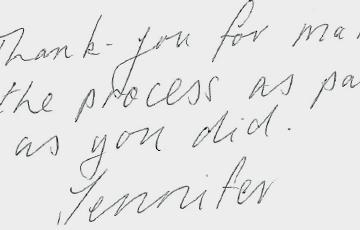 Thank-you for ma
the process as pa
as you did.
Jennifer